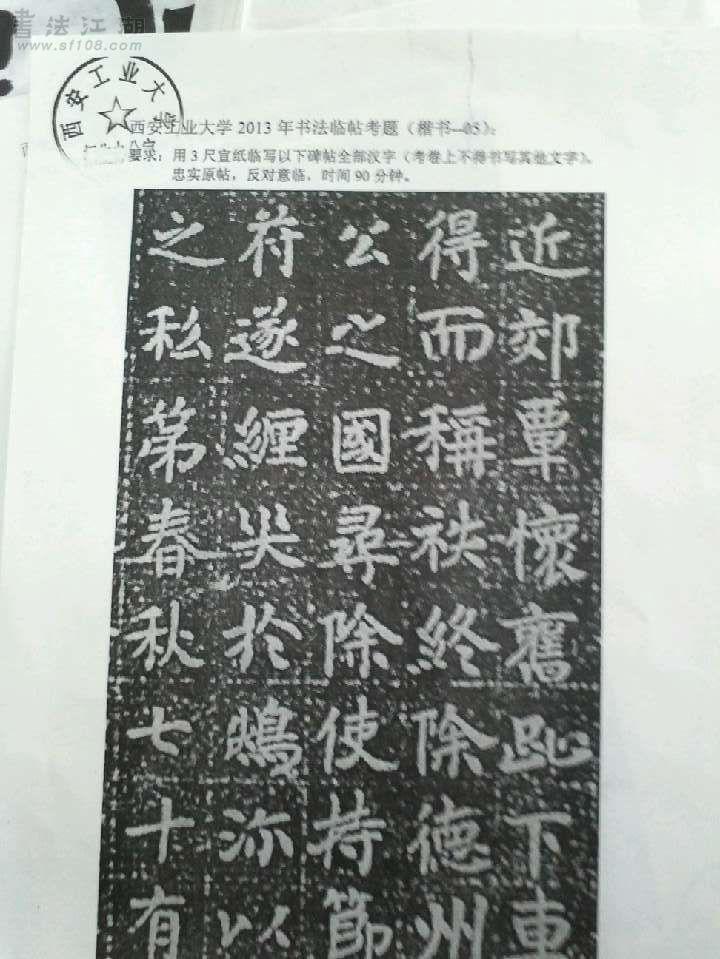 書法江湖
www.sf108.com
西安工业大学
西安工业大学2013年书法临帖考题（楷书--05）：
要求：用3尺宣纸临写以下碑帖全部汉字（考卷上不得书写其他文字）。
忠实原帖，反对意临，时间90分钟。
近郊覃懷舊趾下車
得而稱袟終除德州
公之國尋除使持節
符遂纏災於鵩沵以
之私第春秋七十有